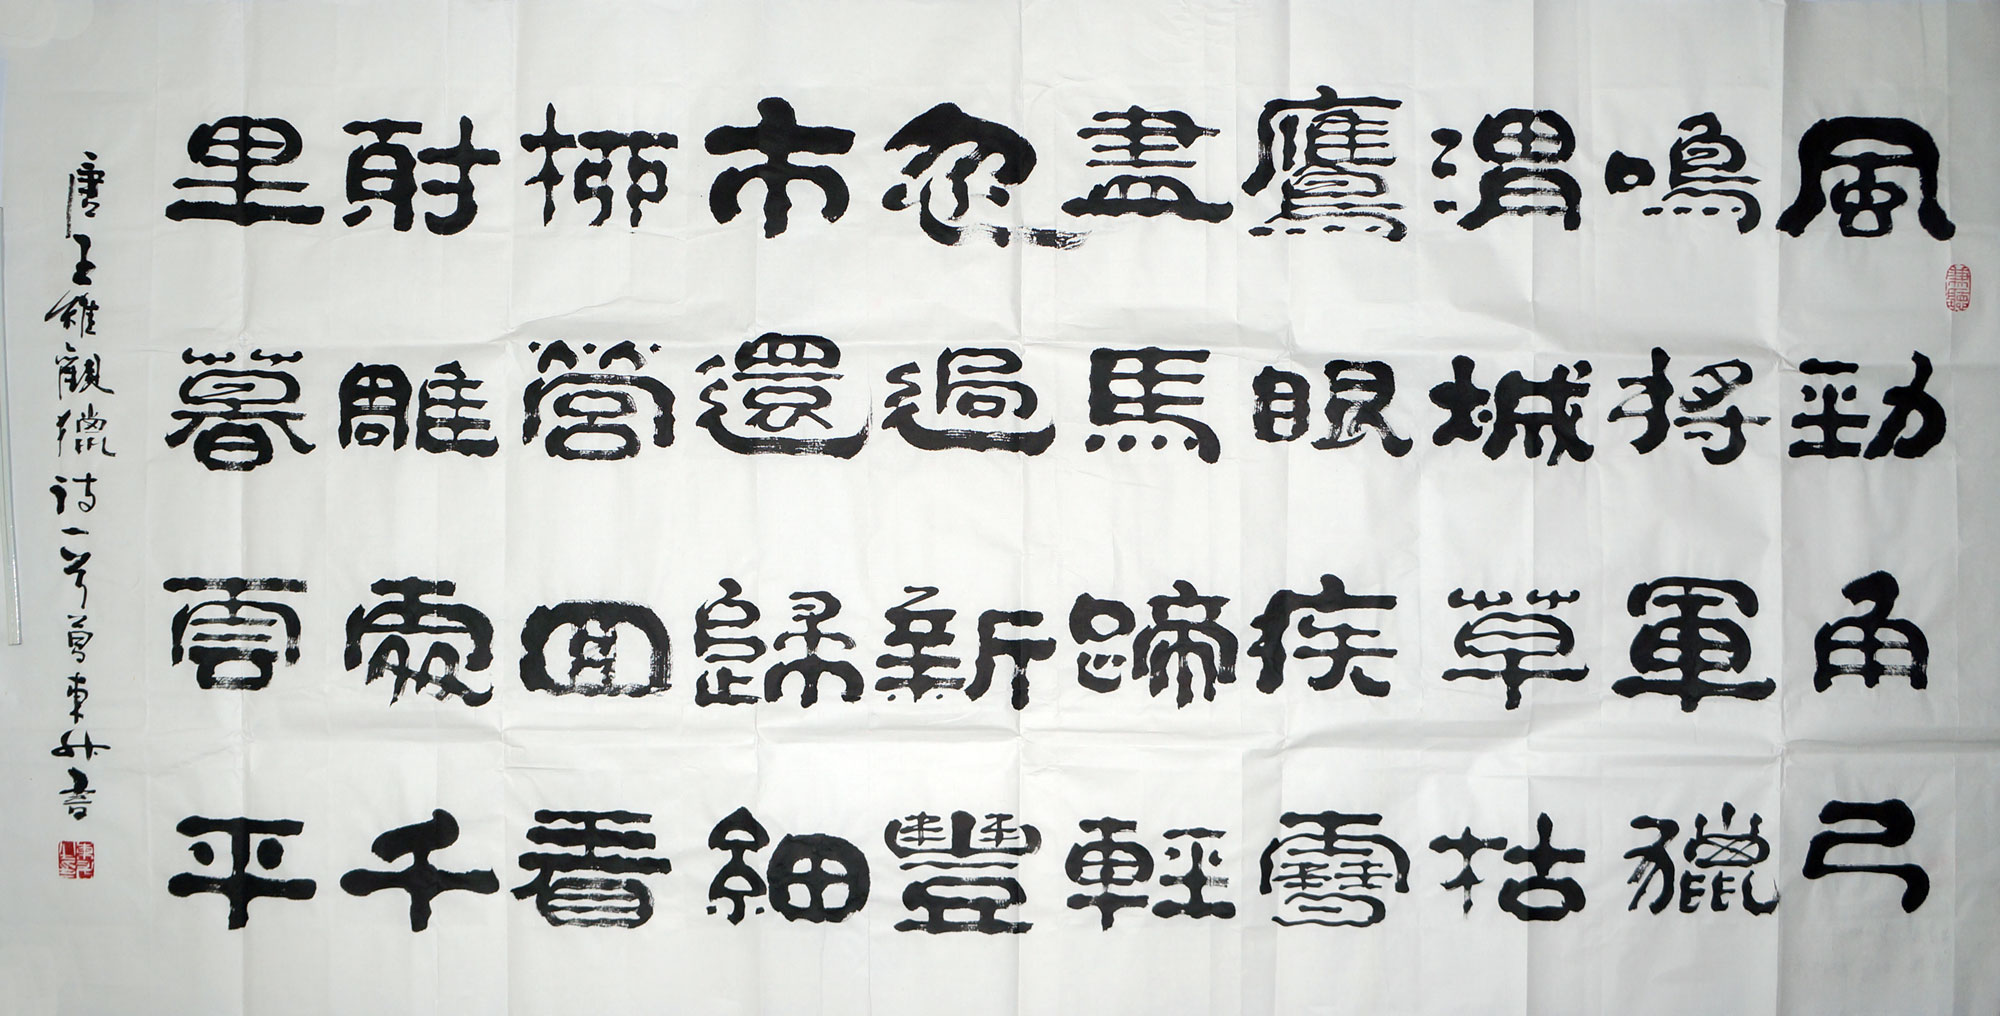 風勁角弓
鳴將軍獵
渭城草枯
鷹眼疾雪
盡馬蹄輕
忽過新豐
市還歸細
柳營回看
射雕處千
里暮雲平
唐王維觀獵詩一首東升書